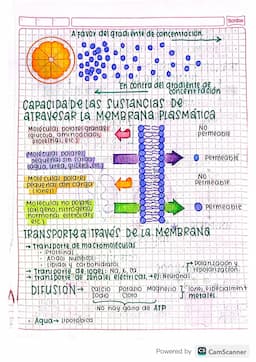 A favor del gradiente de concentración
En contra del gradiente de concentración
CAPACIDAD E LAS SUSTANCIAS DE
ATRAVESAR LA MEMBRANA PLASMÁTICA
Moléculas polares grandes
(glucosa, aminoácidos,
proteínas, etc.)
No
Permeable
Moléculas polares
pequeñas sin carga
(agua, urea, glicerol, etc.)
Permeable
Moléculas polares
pequeñas con carga
(iones)
No
Permeable
Moléculas no polares
(oxígeno, nitrógeno,
hormonas esteroides,
etc.)
Permeable
TRANSPORTE A TRAVÉS DE LA MEMBRANA
→ Transporte de macromoléculas
• Proteínas
• Ácidos Nucleicos
• Lípidos y carbohidratos
→ Transporte de iones: Na, K,
→ Transporte de señales eléctricas, ej: Neuronas
Polarización y
DIFUSIÓN → Calcio Potasio Magnesio
Sodio Cloro
iones, especialment
metales
No hay gasto de ATP
• Agua →
Powered by CS CamScanner